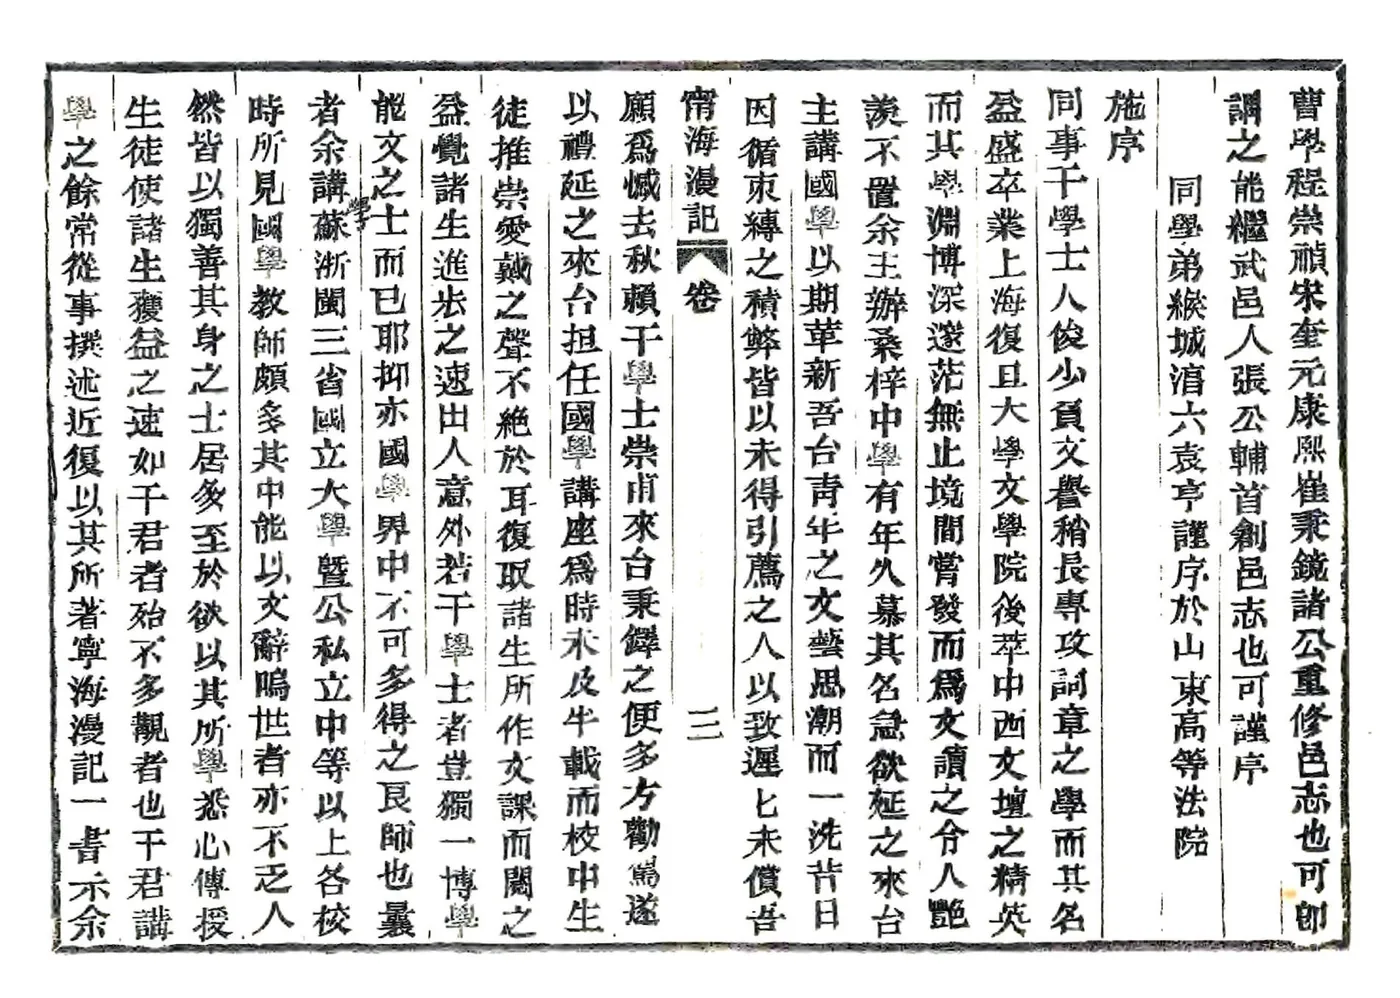 曹學程崇禎宋奎元康熙崔秉鏡諸公重修邑志也可卽
謂之能繼武邑人張公輔首創邑志也可謹序
同學弟緱城滔六袁亨謹序於山東高等法院
施序
同事干學士人俊少負文譽稍長專攻詞章之學而其名
益盛卒業上海復旦大學文學院後萃中西文壇之精英
而其學淵博深邃茫無止境間嘗發而爲文讀之令人豔
羨不置余主辦桑梓中學有年久慕其名急欲延之來台
主講國學以期革新吾台靑年之文藝思潮而一洗昔日
因循束縛之積弊皆以未得引薦之人以致遲匕未償吾
甯海漫記 卷 三
願爲憾去秋賴干學士崇甫來台秉鐸之便多方勸駕遂
以禮延之來台担任國學講座爲時未及半載而校中生
徒推崇愛戴之聲不絕於耳復取諸生所作文課而閱之
益覺諸生進步之速出人意外若干學士者豈獨一博學
能文之士而已耶抑亦國學界中不可多得之良師也曩
者余講學蘇浙閩三省國立大學曁公私立中等以上各校
時所見國學敎師頗多其中能以文辭鳴世者亦不乏人
然皆以獨善其身之士居多至於欲以其所學悉心傳授
生徒使諸生獲益之速如干君者殆不多觀者也干君講
學之餘常從事撰述近復以其所著寧海漫記一書示余